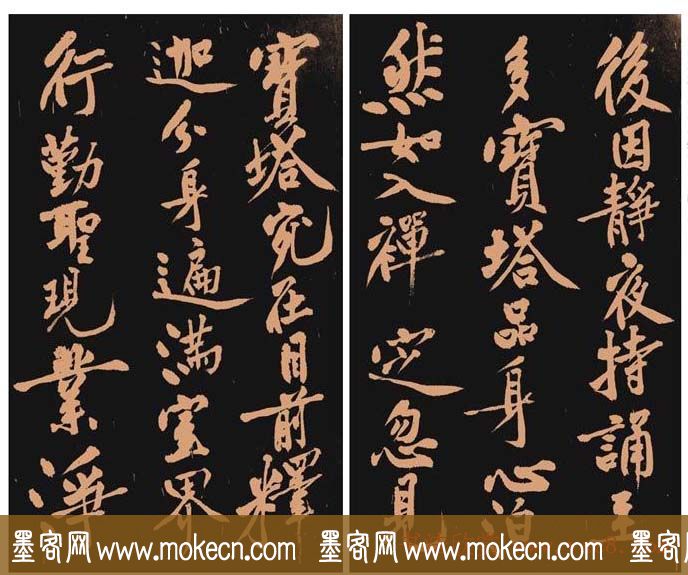 後因靜夜持誦至
多寶塔品身心泊
然如入禪定忽見
寶塔宛在目前釋
迦分身遍滿空界
行勤聖現業淨
墨客网 www.mokecn.com 墨客网 www.mokecn.com